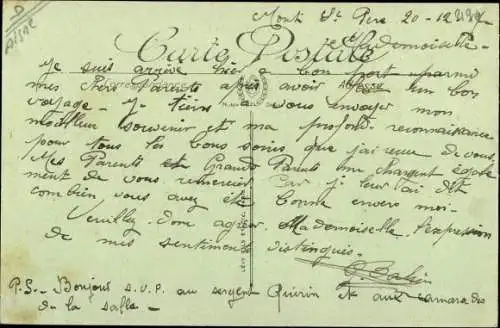 Mont St Père 20-12
Mademoiselle -
Carte Postale
Je suis arrivé hier a bon port parmi
mes chers Parents après avoir un bon
voyage - Je tiens a vous envoyer mon
meilleur souvenir et ma profonde reconnaissance
pour tous les bons soins que j'ai reçu de vous.
Mes Parents et Grands Parents me chargent égale
ment de vous remercier car je leur ai dit
combien vous avez été bonne envers moi-
Veuillez donc agréer Mademoiselle l'expression
de mes sentiments distingués -
P.S.- Bonjour S.V.P. au sergent et aux camarades
de la salle -
D
Aisne